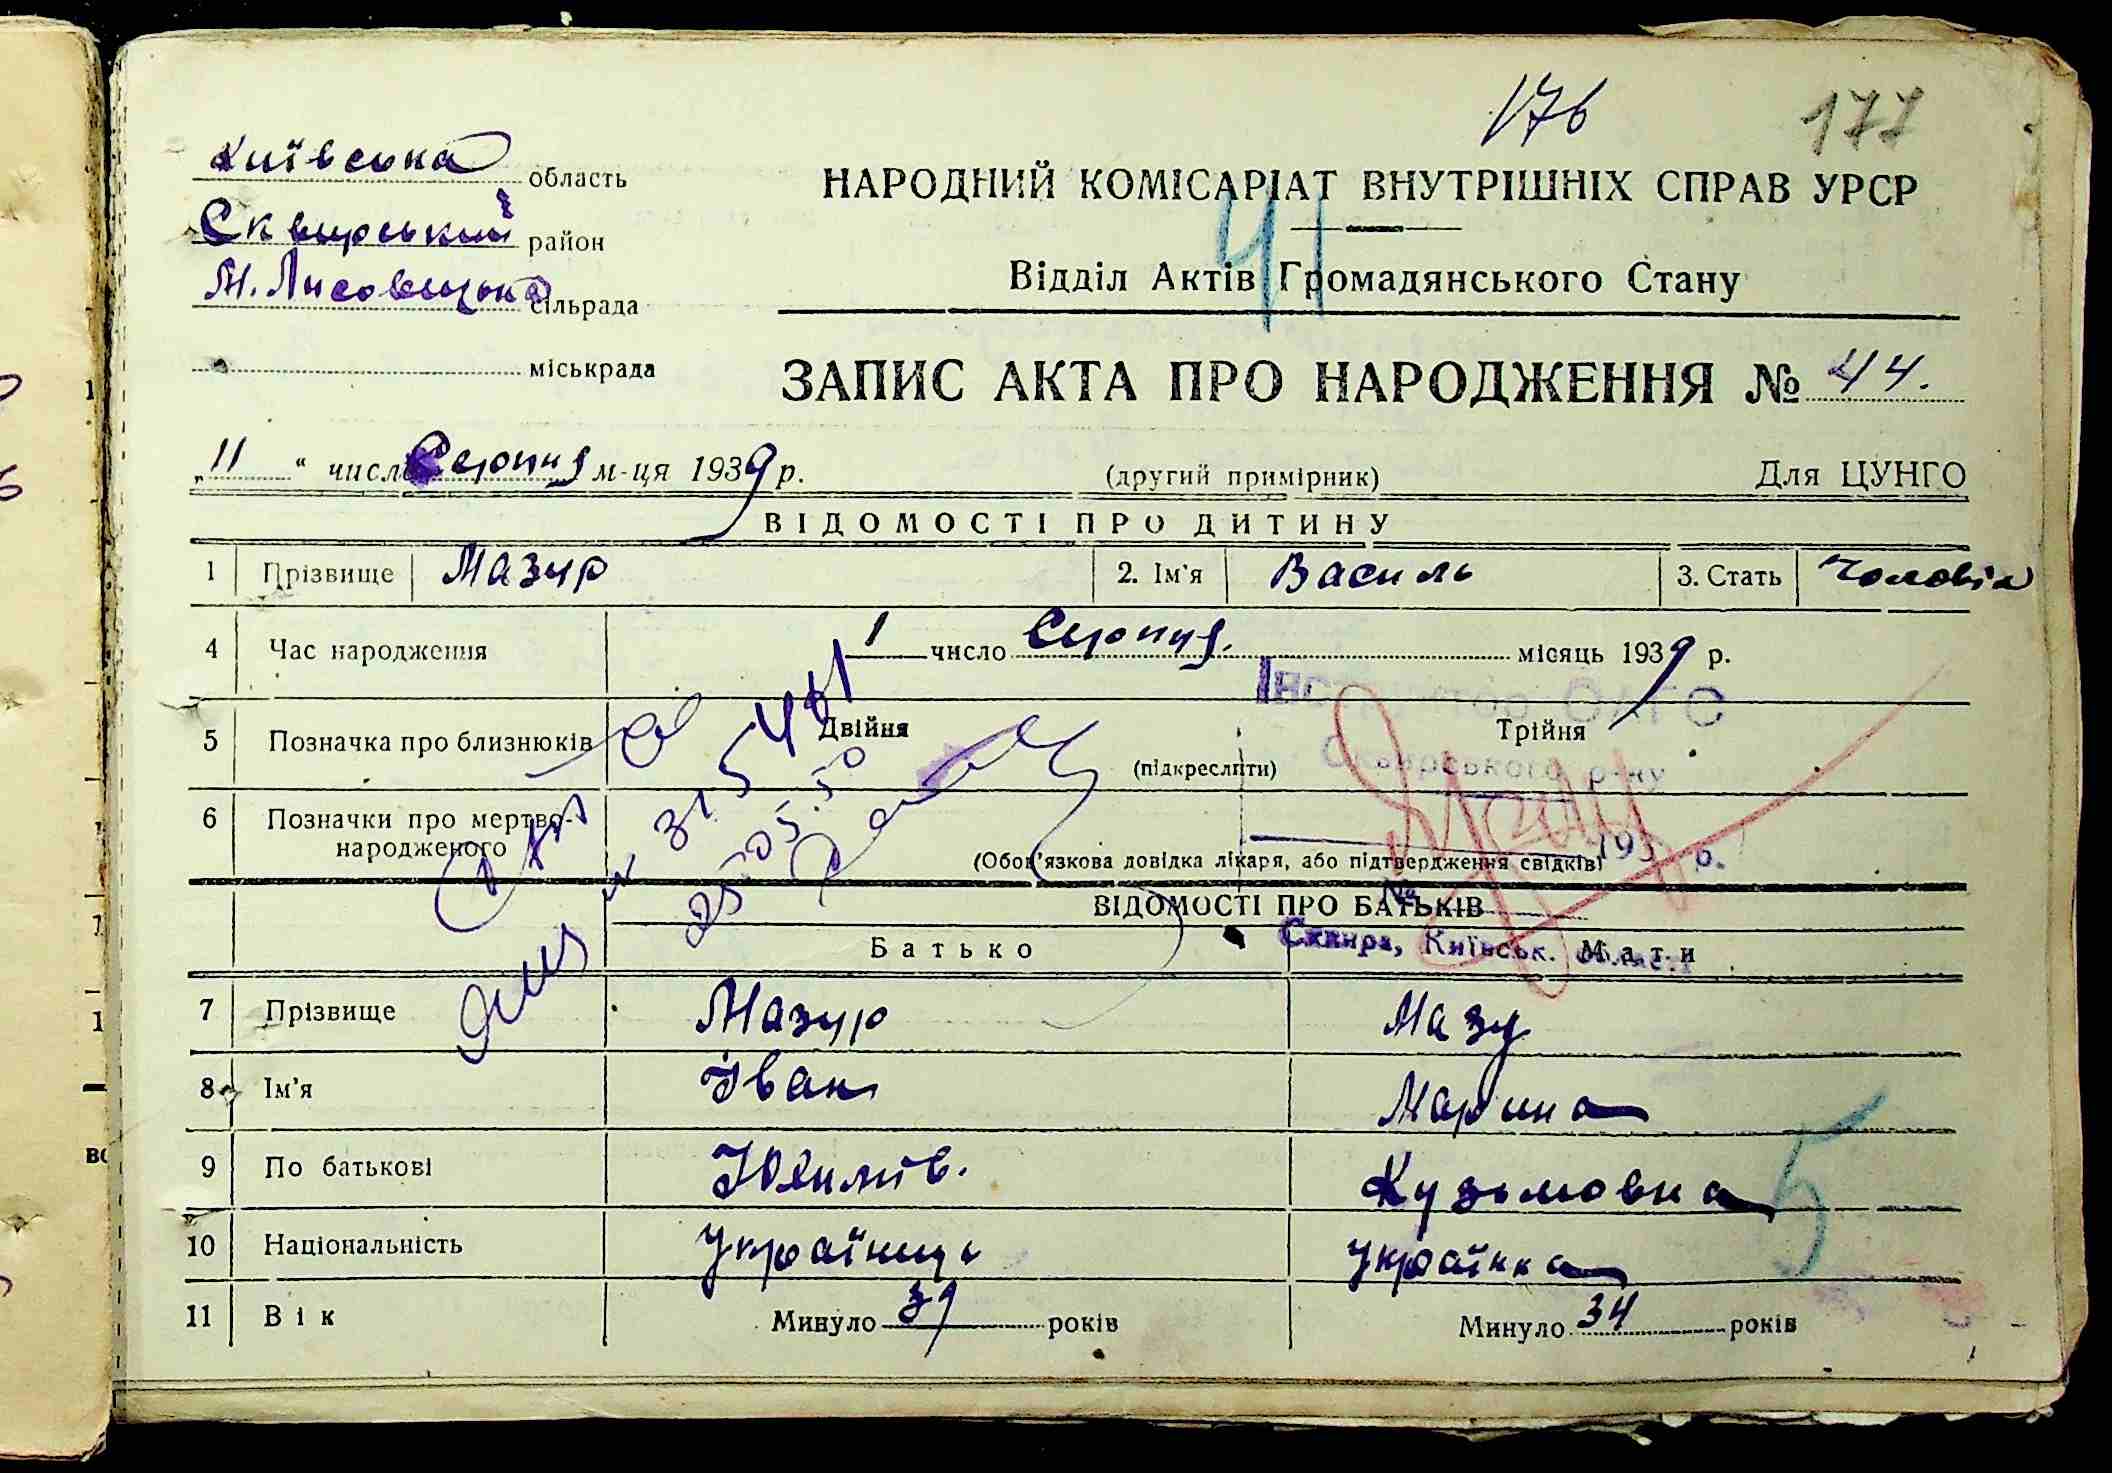 176 177
Київська область
Сквирський район
М. Лисовецька сільрада
міськрада
НАРОДНИЙ КОМІСАРІАТ ВНУТРІШНІХ СПРАВ УРСР
41
Відділ Актів Громадянського Стану
ЗАПИС АКТА ПРО НАРОДЖЕННЯ № 44.
„11“ число Серпня м-ця 1939 р. (другий примірник) Для ЦУНГО
ВІДОМОСТІ ПРО ДИТИНУ
1 Прізвище Мазур 2. Ім'я Василь 3. Стать Чоловіч
4 Час народження 1 число Серпня. місяць 1939 р.
Інструктор ОАГС
5 Позначка про близнюків Двійня Трійня
(підкреслити)
Сквирського р-ну
6 Позначки про мертво-
народженого
(Обов'язкова довідка лікаря, або підтвердження свідків)
193 р.
25.05.50
№
ВІДОМОСТІ ПРО БАТЬКІВ
Батько Мати
Сквира, Київськ. област.
7 Прізвище Мазур Мазу
8 Ім'я Іван Марина
9 По батькові Юхимів. Кузьмовна
5
10 Національність Українць Українка
11 Вік Минуло 39 років Минуло 34 років